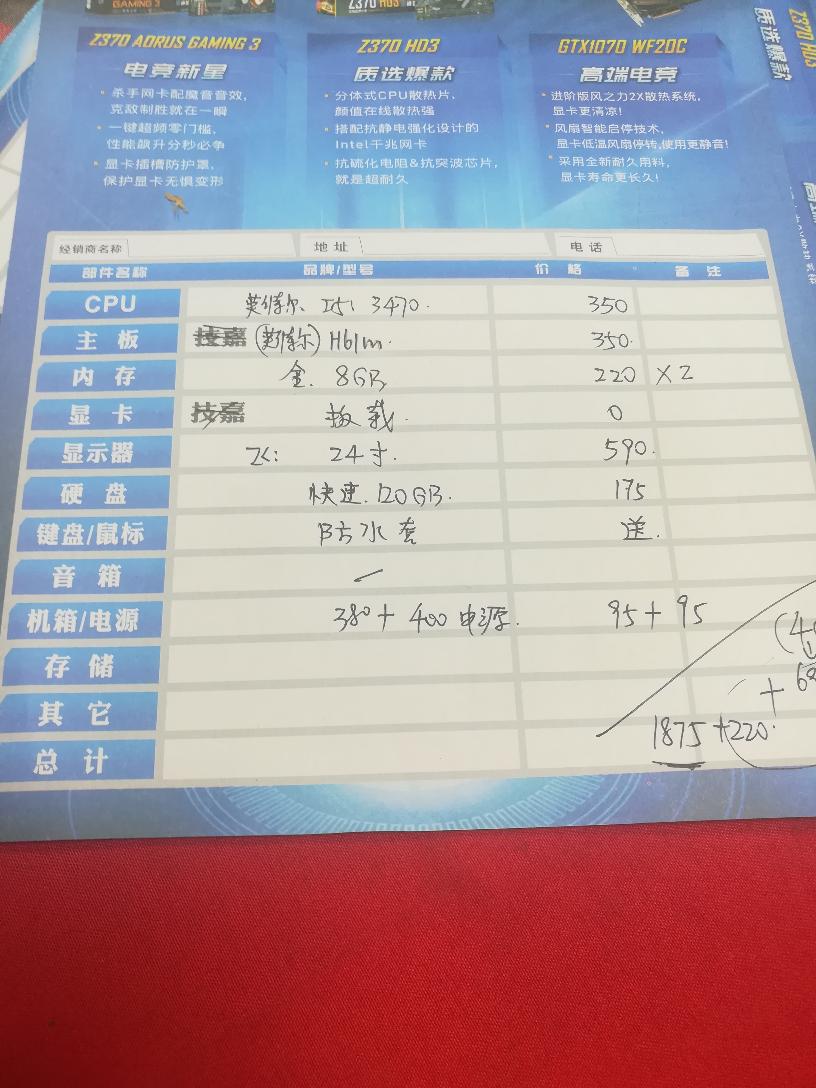 GAMING 3
Z370 HD3
Z370 AORUS GAMING 3
电竞新星
• 杀手网卡配魔音音效，
克敌制胜就在一瞬
• 一键超频零门槛，
性能飙升分秒必争
• 显卡插槽防护罩，
保护显卡无惧变形
Z370 HD3
质选爆款
• 分体式CPU散热片、
颜值在线散热强
• 搭配抗静电强化设计的
Intel千兆网卡
• 抗硫化电阻&抗突波芯片，
就是超耐久
GTX1070 WF2OC
高端电竞
• 进阶版风之力2X散热系统，
显卡更清凉！
• 风扇智能启停技术，
显卡低温风扇停转，使用更静音！
• 采用全新耐久用料，
显卡寿命更长久！
Z370 HD3
质选爆款
经销商名称 地址 电话
部件名称 品牌/型号 价格 备注
CPU 英特尔 I5: 3470. 350
主板 技嘉 (英特尔) H61m. 350.
内存 金. 8GB 220 X2
显卡 技嘉 板载. 0
显示器 24寸. 590.
硬盘 快速. 120GB. 175
键盘/鼠标 防水套 送.
音箱
机箱/电源 380+ 400电源. 95+95
存储
其它
1875 +220.
总计